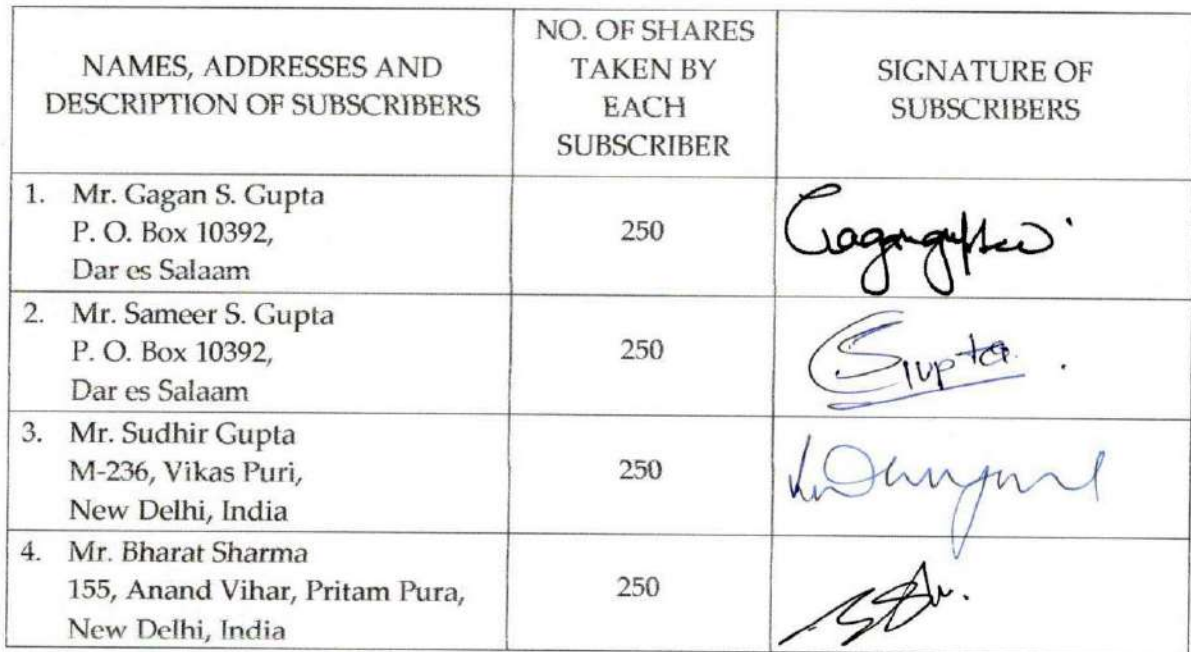 NAMES, ADDRESSES AND
DESCRIPTION OF SUBSCRIBERS
NO. OF SHARES
TAKEN BY
EACH
SUBSCRIBER
SIGNATURE OF
SUBSCRIBERS
1. Mr. Gagan S. Gupta
P. O. Box 10392,
Dar es Salaam
250
Gagangupta
2. Mr. Sameer S. Gupta
P. O. Box 10392,
Dar es Salaam
250
SGupta.
3. Mr. Sudhir Gupta
M-236, Vikas Puri,
New Delhi, India
250
4. Mr. Bharat Sharma
155, Anand Vihar, Pritam Pura,
New Delhi, India
250